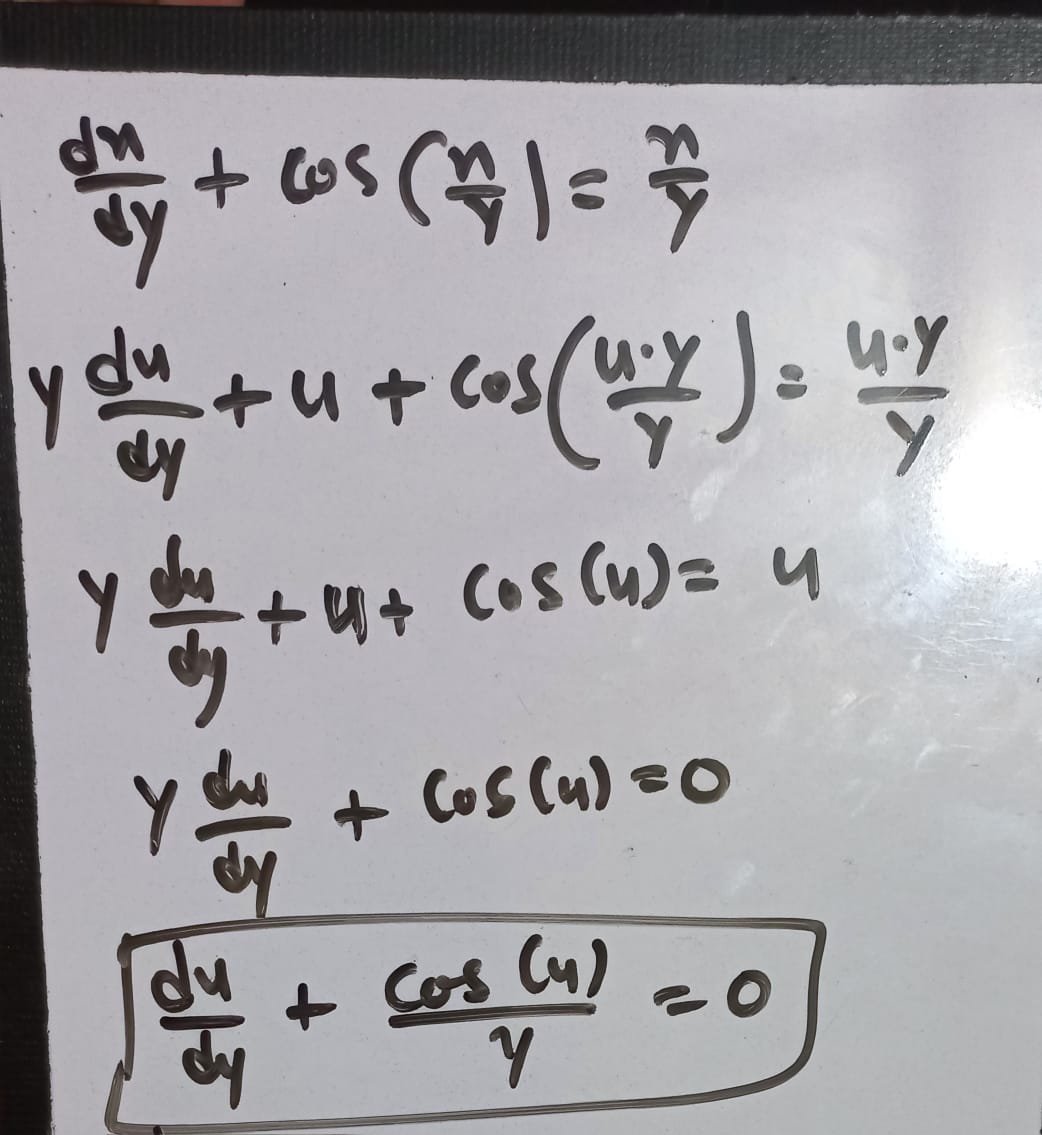 dx/dy + cos(x/y) = x/y
y du/dy + u + cos(u·y/y) = u·y/y
y du/dy + u + cos(u) = u
y du/dy + cos(u) = 0
du/dy + cos(u)/y = 0